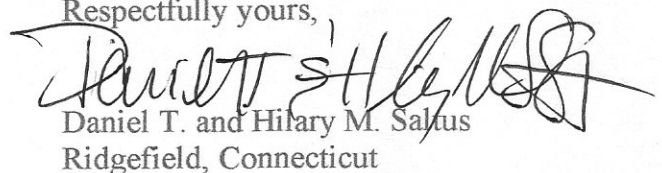 Respectfully yours,
Daniel T & Hilary M Saltus
Daniel T. and Hilary M. Saltus
Ridgefield, Connecticut